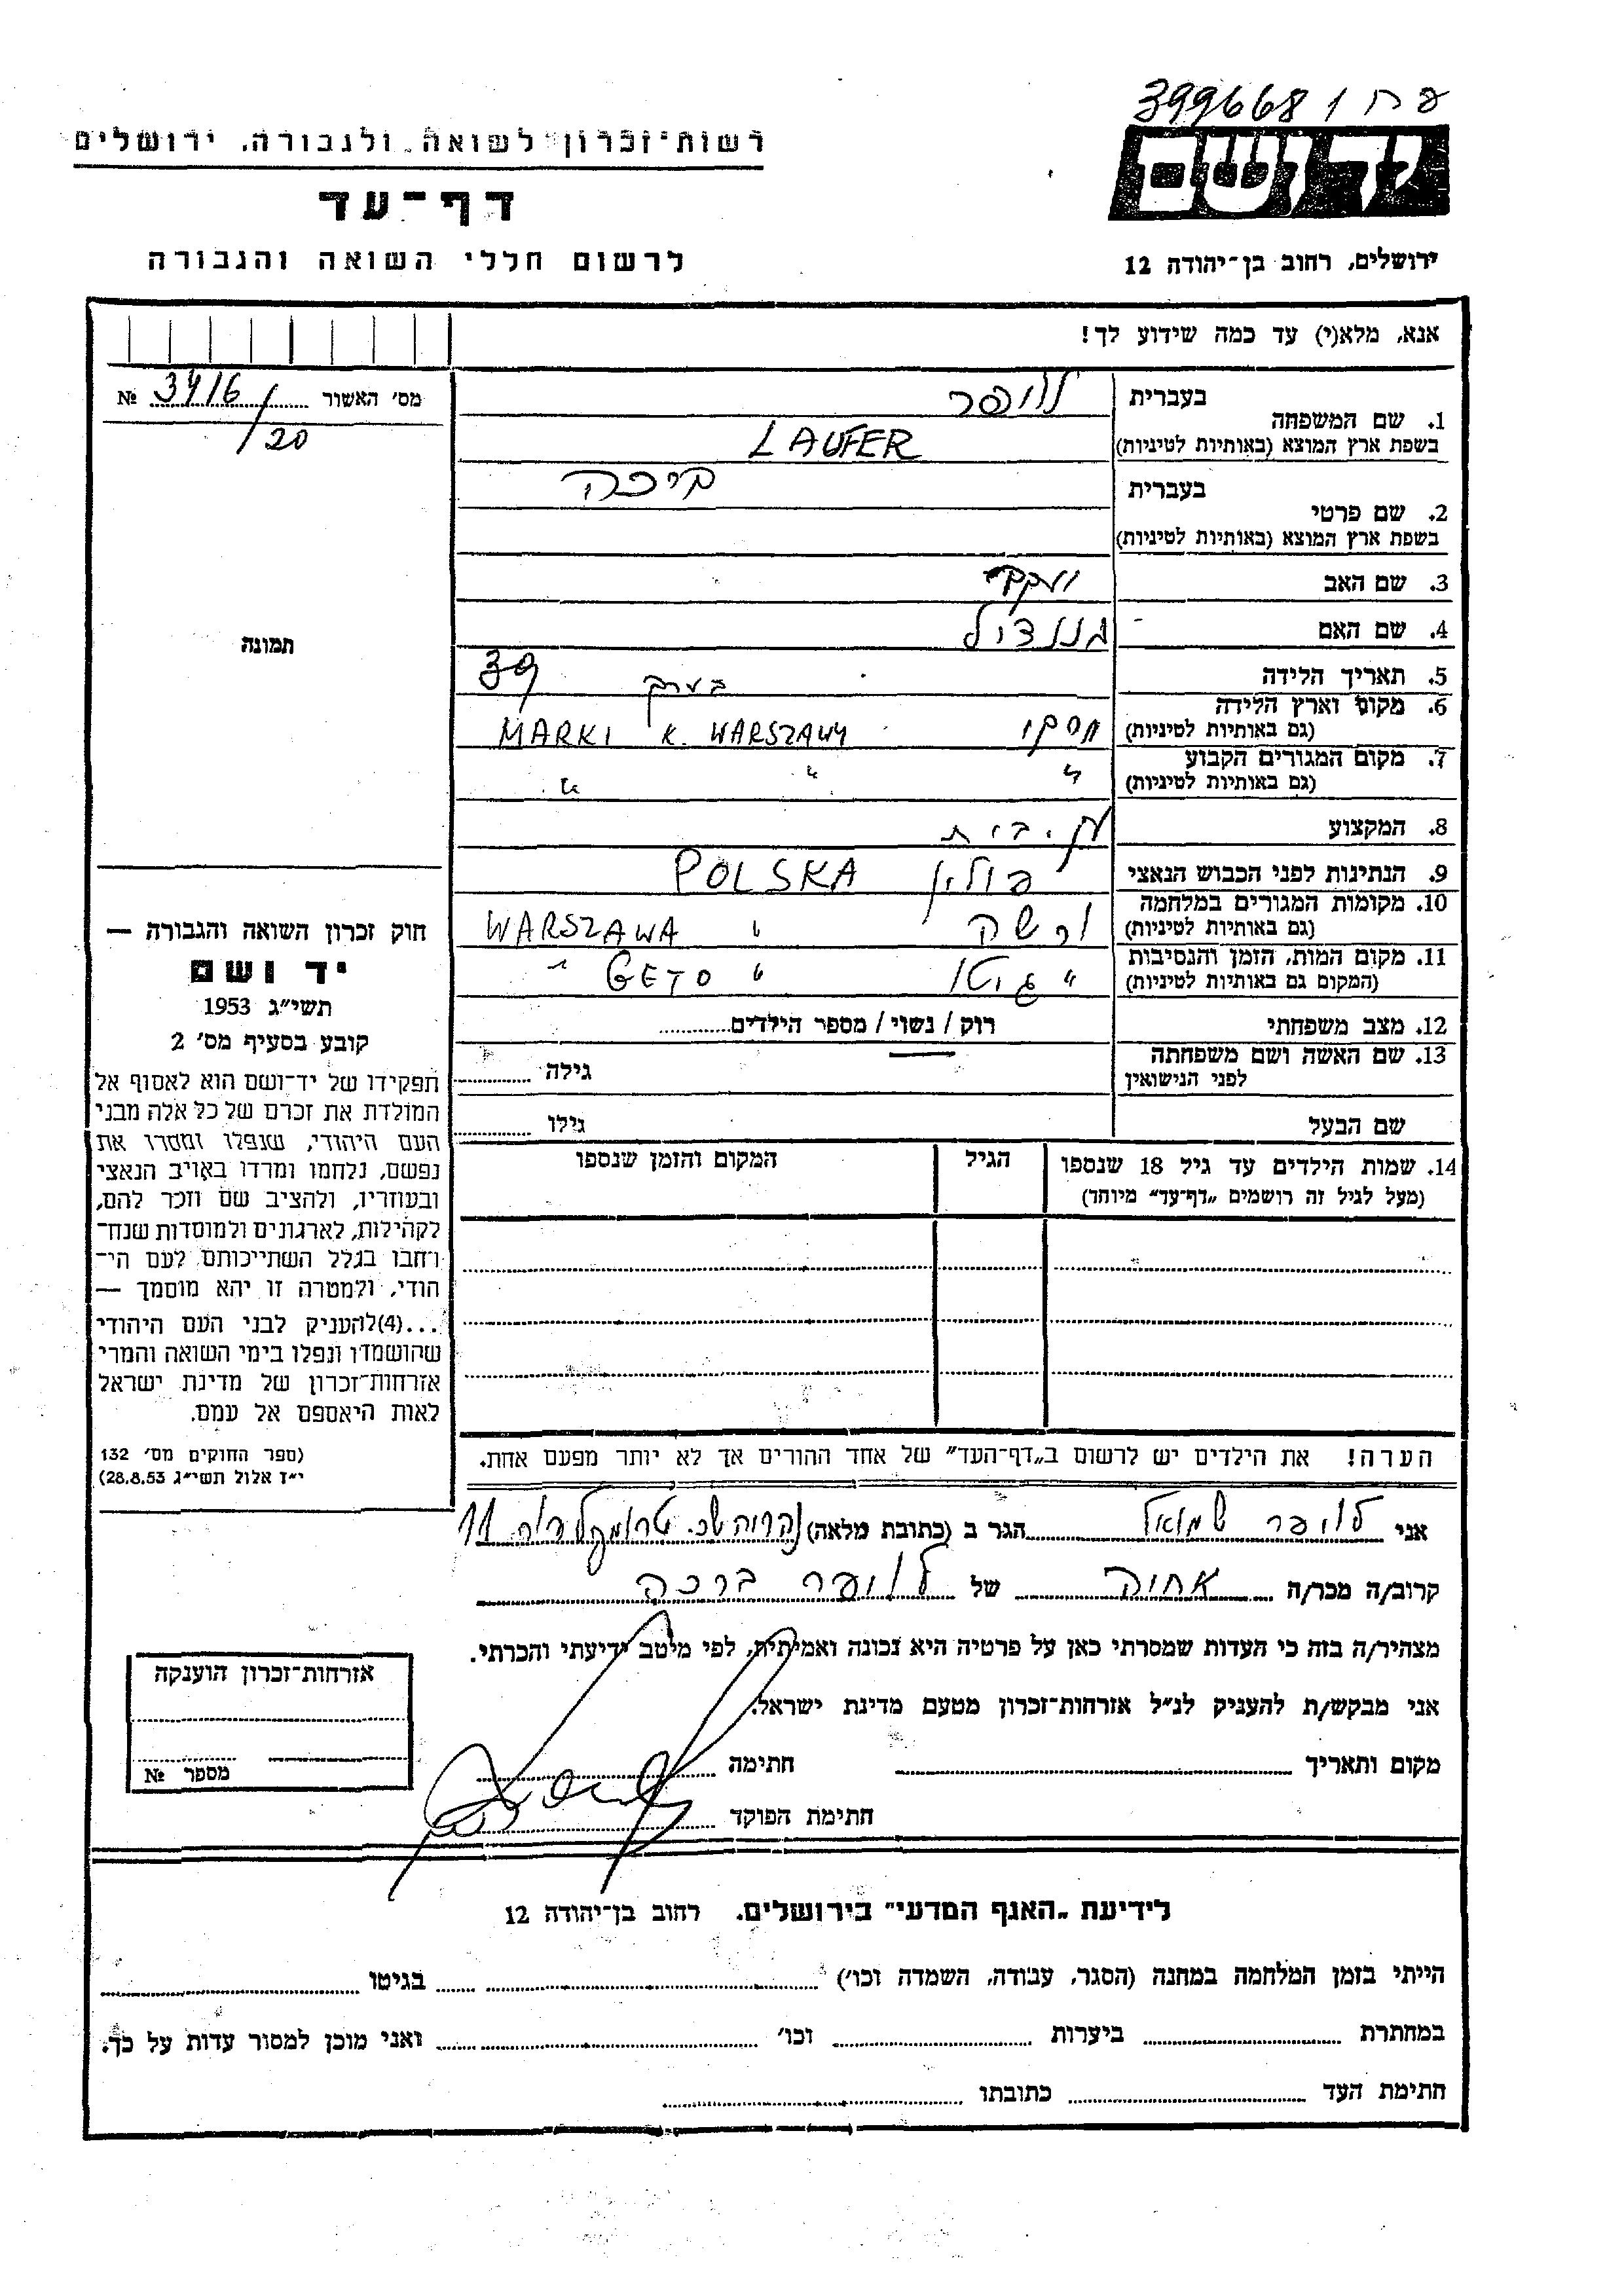 399668 / פח
רשות־זכרון לשואה ולגבורה, ירושלים
ידושם
דף־עד
לרשום חללי השואה והגבורה
ירושלים, רחוב בן־יהודה 12
אנא, מלא(י) עד כמה שידוע לך!
מס׳ האשור № 3416/20
בעברית
1. שם המשפחה לופר
בשפת ארץ המוצא (באותיות לטיניות) LAUFER
בעברית
2. שם פרטי
בשפת ארץ המוצא (באותיות לטיניות)
3. שם האב
4. שם האם
תמונה
5. תאריך הלידה בערך 39
6. מקום וארץ הלידה
(גם באותיות לטיניות) MARKI K. WARSZAWY
7. מקום המגורים הקבוע
(גם באותיות לטיניות) " " "
8. המקצוע
9. הנתינות לפני הכבוש הנאצי פולין POLSKA
10. מקומות המגורים במלחמה
(גם באותיות לטיניות) ורשה " WARSZAWA
11. מקום המות, הזמן והנסיבות
(המקום גם באותיות לטיניות) " גיטו " GETO "
12. מצב משפחתי רוק / נשוי / מספר הילדים
13. שם האשה ושם משפחתה
לפני הנישואין גילה
שם הבעל גילו
14. שמות הילדים עד גיל 18 שנספו הגיל המקום והזמן שנספו
(מעל לגיל זה רושמים „דף־עד” מיוחד)
חוק זכרון השואה והגבורה —
יד ושם
תשי״ג 1953
קובע בסעיף מס׳ 2
תפקידו של יד־ושם הוא לאסוף אל
המולדת את זכרם של כל אלה מבני
העם היהודי, שנפלו ומסרו את
נפשם, נלחמו ומרדו באויב הנאצי
ובעוזריו, ולהציב שם וזכר להם,
לקהילות, לארגונים ולמוסדות שנח־
רבו בגלל השתייכותם לעם הי־
הודי, ולמטרה זו יהא מוסמך —
...(4)להעניק לבני העם היהודי
שהושמדו ונפלו בימי השואה והמרי
אזרחות־זכרון של מדינת ישראל
לאות היאספם אל עמם.
(ספר החוקים מס׳ 132
י״ז אלול תשי״ג 28.8.53)
הערה! את הילדים יש לרשום ב„דף־העד” של אחד ההורים אך לא יותר מפעם אחת.
אני לופר שמואל הגר ב (כתובת מלאה) 11
קרוב/ה מכר/ה של לופר ברכה
מצהיר/ה בזה כי העדות שמסרתי כאן על פרטיה היא נכונה ואמיתית, לפי מיטב ידיעתי והכרתי.
אני מבקש/ת להעניק לנ״ל אזרחות־זכרון מטעם מדינת ישראל.
מקום ותאריך חתימה
חתימת הפוקד
אזרחות־זכרון הוענקה
מספר №
לידיעת „האגף המדעי” בירושלים, רחוב בן־יהודה 12
הייתי בזמן המלחמה במחנה (הסגר, עבודה, השמדה וכו׳) בגיטו
במחתרת ביערות וכו׳ ואני מוכן למסור עדות על כך.
חתימת העד כתובתו